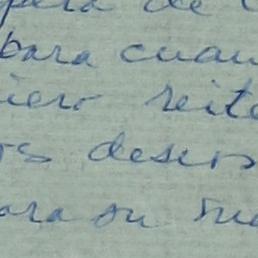 para de
para cuan
iero reite
os deseos
ara su